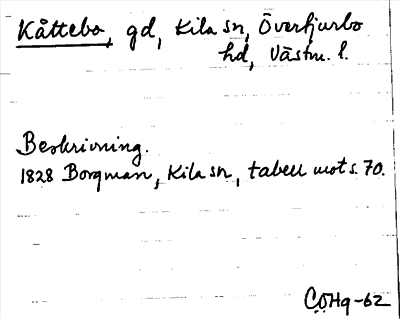 Kåttebo, gd, Kila sn, Överfjurbo
hd, Västm. l.
Beskrivning.
1828 Borgman, Kila sn, tabell mot s. 70.
COHq-62